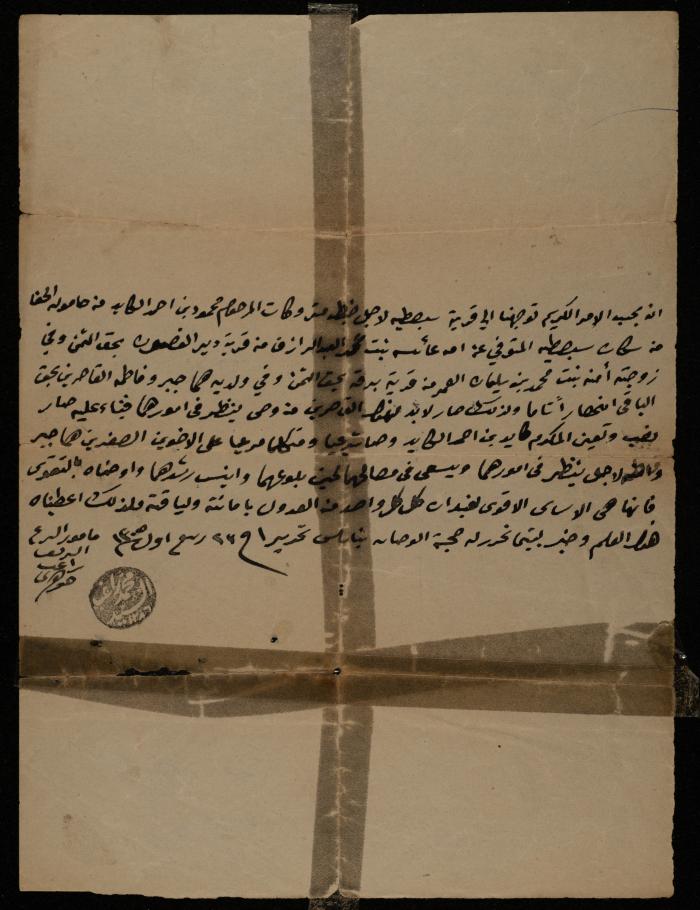 انه بحسب الامر الكريم توجهنا الى قرية سبصطيه لاجل ضبط متروكات المرحوم محمود بن احمد الكايد من حاموله
من سكان سبصطيه المتوفي عن امه عائشه بنت محمد العبد الرازق من قرية دير الغصون بحق الثمن وفي
زوجته أمنه بنت محمد بن سليمان العمر من قرية برقه بحق الثمن وفي ولديه هما جبر وفاطمه القاصرين بحق
الباقي انحصار أتاما ولذلك صار لابد القاصرين من وصي ينظر في امورهما فبناء عليه صار
نصب وتعين المكرم كايد بن احمد الكايد وصيا شرعيا ومتكلما مرعيا على الاخوين الصغيرين هما جبر
وفاطمه لاجل ينظر في امورهما ويسعى في مصالحهما لحين بلوغهما واينس رشدهما واوصناه بالتقوى
فانها هي الاساس الاقوى كل واحد من العدول بامانته ولياقة ولذلك اعطيناه
هذا العلم وخبر لبيتما تحرر له حجية الوصايه بنابلس تحريرا في ٢٣ ربيع اول
مامور